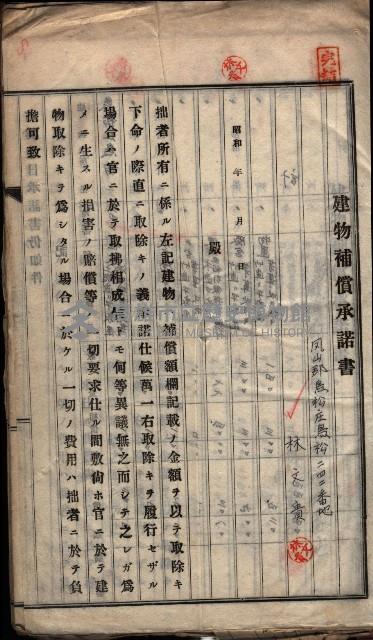 建物補償承諾書
鳳山郡鳥松庄鳥松二四二番地
林文
昭和 年 月 日
殿
拙者所有ニ係ル左記建物ノ補償額欄記載ノ金額ヲ以テ取除キ
下命ノ際直ニ取除キノ義諾仕候萬一右取除キヲ履行セザル
場合ハ官ニ於テ取拂相成候トモ何等異議無之而シテ之レガ為
メニ生スル損害ノ賠償等一切要求仕ル間敷尚ホ官ニ於テ建
物取除キヲ為シタル場合ニ於ケル一切ノ費用ハ拙者ニ於テ負
擔可致